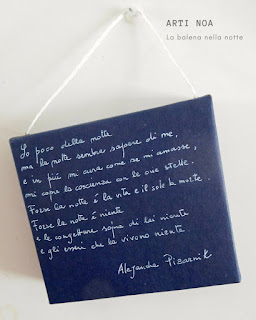 ARTI NOA
La balena nella notte
So poco della notte
ma la notte sembra sapere di me,
e in più mi cura come se mi amasse,
mi copre la coscienza con le sue stelle.
Forse la notte è la vita e il sole la morte.
Forse la notte è niente
e le congetture sopra di lei niente
e gli esseri che la vivono niente.
Alejandra Pizarnik